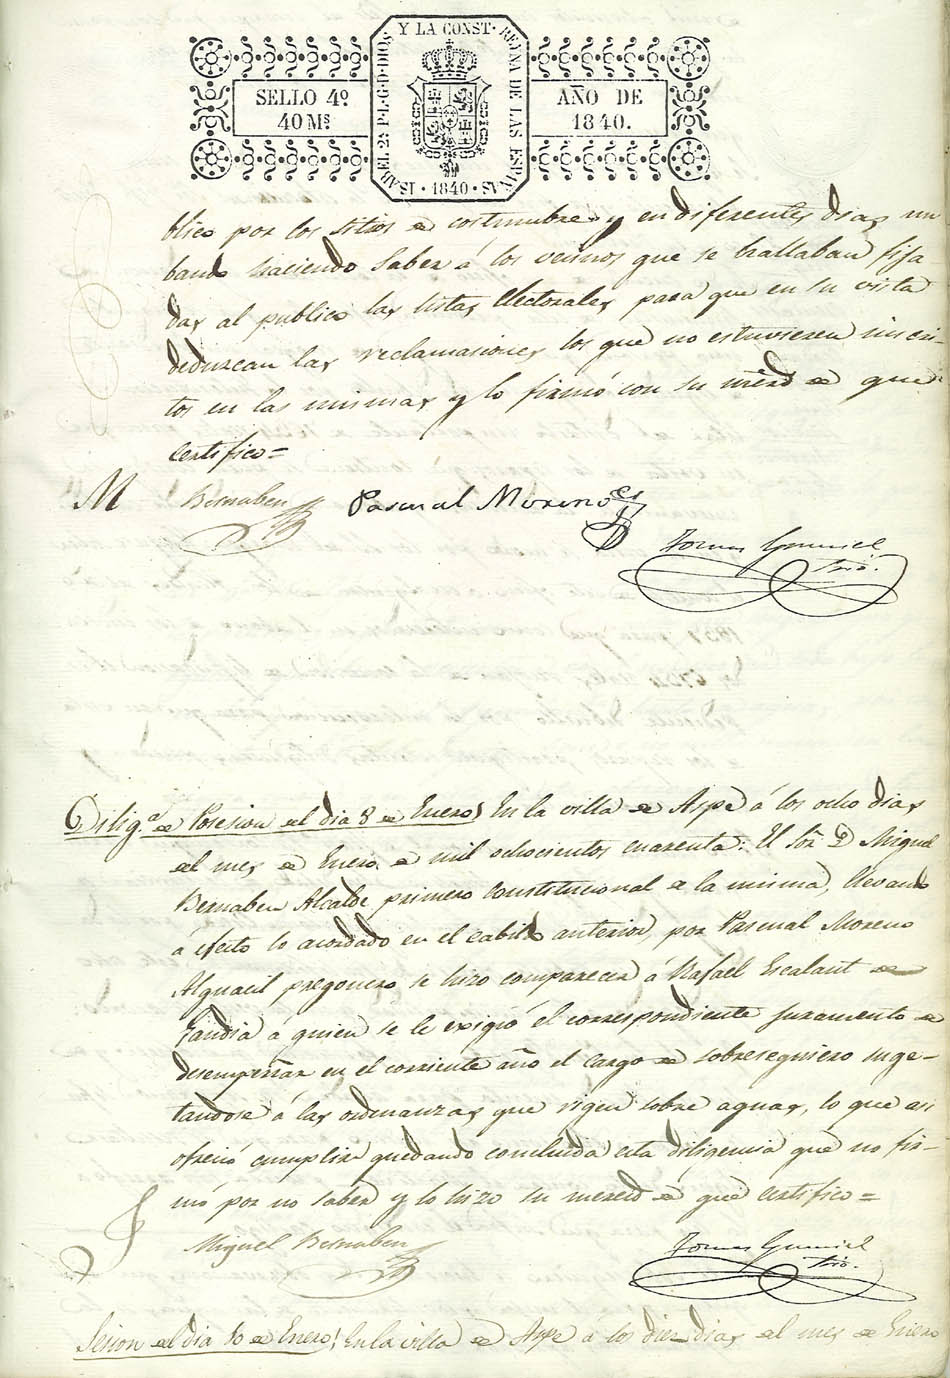 ISABEL 2ª P·L·G·D·DIOS Y LA CONST· REYNA DE LAS ESPAÑAS · 1840 ·
SELLO 4º
40 Mˢ
AÑO DE
1840.
blico por los sitios de costumbre y en diferentes dias un
bando haciendo saber á los vecinos que se hallaban fija-
das al publico las listas electorales para que en su vista
deduzcan las reclamasiones los que no estuviesen inscri-
tos en las mismas y lo firmó con su merd de que
certifico=
M Bernabeu Pascual Moreno
Tomas Gumiel
Srio.
Diligª de Posesion del dia 8 de Enero} En la villa de Aspe á los ocho dias
del mes de Enero de mil ochocientos cuarenta: El Sor. D. Miguel
Bernabeu Alcalde primero Constitucional de la misma, llevando
á efecto lo acordado en el cabildo anterior, por Pascual Moreno
Alguacil pregonero se hizo comparecer á Rafael Escalant de
Candia á quien se le exigió el correspondiente juramento de
desempeñar en el corriente año el cargo de sobresequiero suge-
tandose á las ordenanzas que rigen sobre aguas, lo que asi
ofreció cumplir quedando concluida esta diligencia que no fir-
mó por no saber y lo hizo su merced de que certifico=
Miguel Bernabeu
Tomas Gumiel
Srio.
Sesion del dia 10 de Enero} En la villa de Aspe á los diez dias del mes de Enero